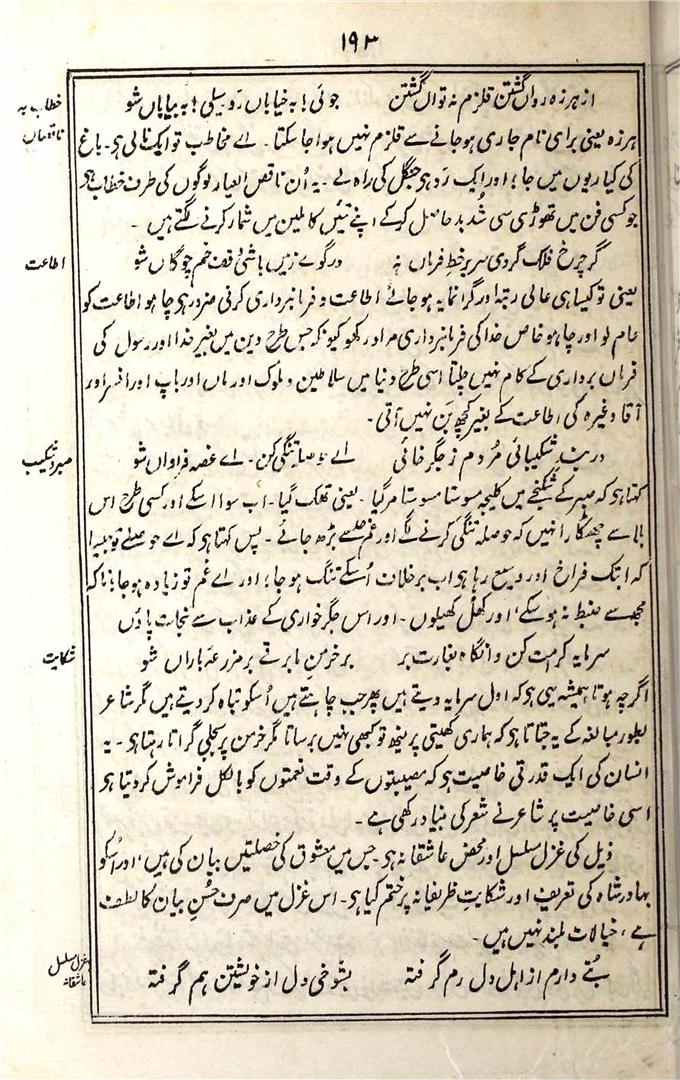 ۱۹۳
از ہرزہ رواں گشتن قلزم نہ تواں گشتن جوئی! بہ خیاباں رَو سیلی! بہ بیاباں شو
خطاب بہ ناقصاں
ہرزہ یعنی برای نام جاری ہو جانے سے قلزم نہیں ہوا جا سکتا۔ اے مخاطب تو ایک نالی ہی۔ باغ
کی کیاریوں میں جا؛ اور ایک رَو ہی جنگل کی راہ لے۔ یہ اُن ناقص العیار لوگوں کی طرف خطاب ہی
جو کسی فن میں تھوڑی سی شُد بد حاصل کرکے اپنے تئیں کاملین میں شمار کرنے لگتے ہیں۔
گر چرخ فلک گردی سر بر خط فرماں نہ در گوے زمیں باشی وقف خم چوگاں شو
اطاعت
یعنی تو کیسا ہی عالی رتبہ اور گرانمایہ ہو جائے اطاعت و فرمانبرداری کرنی ضرور ہی چاہو اطاعت کو
عام لو اور چاہو خاص خدا کی فرمانبرداری مراد رکھو کیونکہ جس طرح دین میں بغیر خدا اور رسول کی
فرماں برداری کے کام نہیں چلتا اسی طرح دنیا میں سلاطین و ملوک اور ماں اور باپ اور افسر اور
آقا وغیرہ کی اطاعت کے بغیر کچھ بَن نہیں آتی۔
در بند شکیبائی مُردم ز جگر خائی اے حوصلہ تنگی کن۔ اے غصہ فراواں شو
صبر و شکیب
کہتا ہی کہ صبر کے شکنجے میں کلیجہ مسوستا مسوستا مر گیا۔ یعنی تھک گیا۔ اب سوا اسکے اور کسی طرح اس
بلا سے چھٹکارا نہیں کہ حوصلہ تنگی کرنے لگے اور غم حد سے بڑھ جائے۔ پس کہتا ہی کہ اے حوصلے تو جیسا
کہ ابتک فراخ اور وسیع رہا ہی اب برخلاف اُسکے تنگ ہو جا؛ اور اے غم تو زیادہ ہو جا؛ تاکہ
مجھ سے ضبط نہ ہو سکے، اور کھُل کھیلوں۔ اور اس جگر خواری کے عذاب سے نجات پاؤں
سرمایہ کرامت کن و انگاہ بغارت بر بر خرمن ما برقے بر مزرعہ باراں شو
شکایت
اگرچہ ہوتا ہمیشہ یہی ہی کہ اول سرمایہ دیتے ہیں پھر جب چاہتے ہیں اُسکو تباہ کر دیتے ہیں مگر شاعر
بطور مبالغہ کے یہ جتاتا ہی کہ ہماری کھیتی پر مینھ تو کبھی نہیں برساتا مگر خرمن پر بجلی گراتا رہتا ہی۔ یہ
انسان کی ایک قدرتی خاصیت ہی کہ مصیبتوں کے وقت نعمتوں کو بالکل فراموش کر دیتا ہی
اسی خاصیت پر شاعر نے شعر کی بنیاد رکھی ہے۔
ذیل کی غزل مسلسل اور محض عاشقانہ ہی۔ جس میں معشوق کی خصلتیں بیان کی ہیں، اور اُسکو
بہادر شاہ کی تعریف اور شکایتِ ظریفانہ پر ختم کیا ہی۔ اس غزل میں صرف حُسن بیان کا لطف
ہے، خیالات بلند نہیں ہیں۔
بُتے دارم از اہل دل رم گرفتہ بشوخی دل از خویشتن ہم گرفتہ
غزل مسلسل عاشقانہ